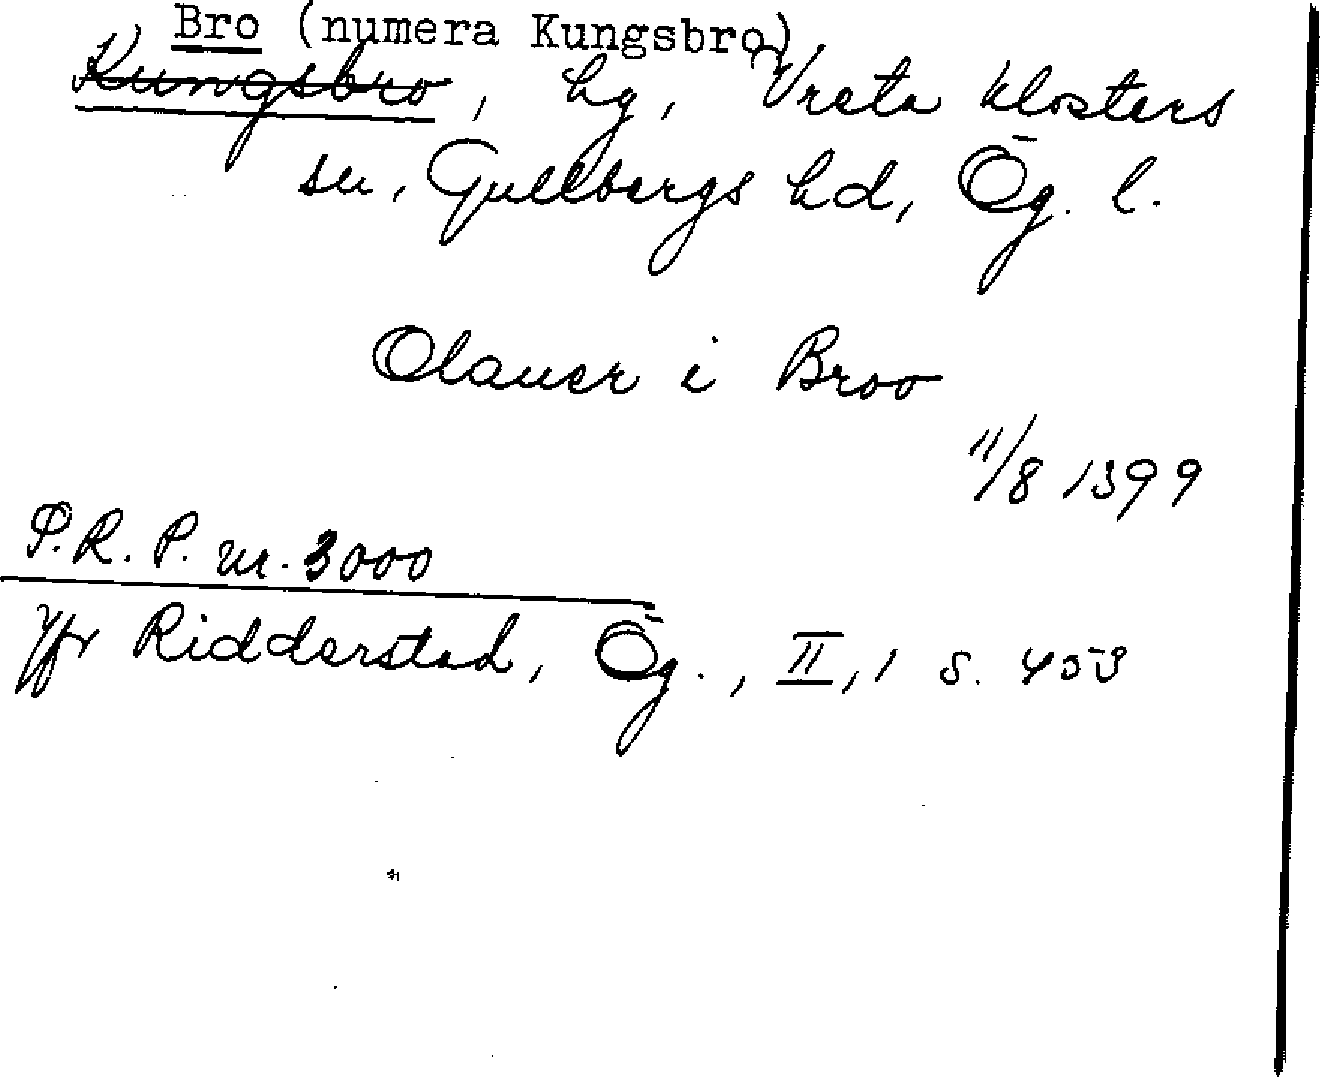 Bro (numera Kungsbro)
Kungsbro, hg, Vreta Klosters
sn, Gullbergs hd, Ög. l.
Olauer i Broo
11/8 1399
P.R.P. nr. 3000
Jfr Ridderstad, Ög., II, 1 s. 453